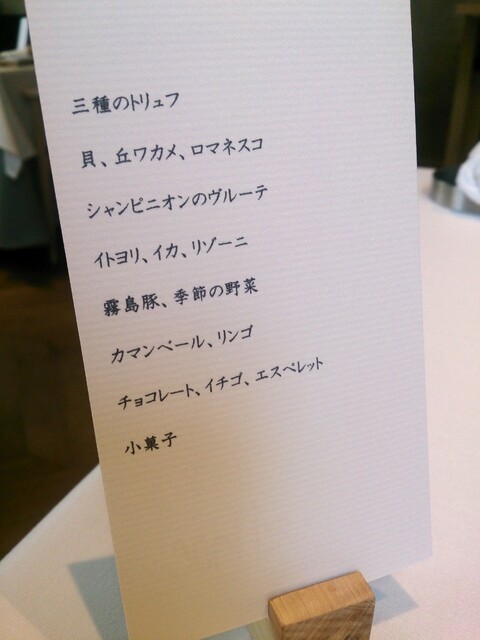 三種のトリュフ
貝、丘ワカメ、ロマネスコ
シャンピニオンのヴルーテ
イトヨリ、イカ、リゾーニ
霧島豚、季節の野菜
カマンベール、リンゴ
チョコレート、イチゴ、エスペレット
小菓子